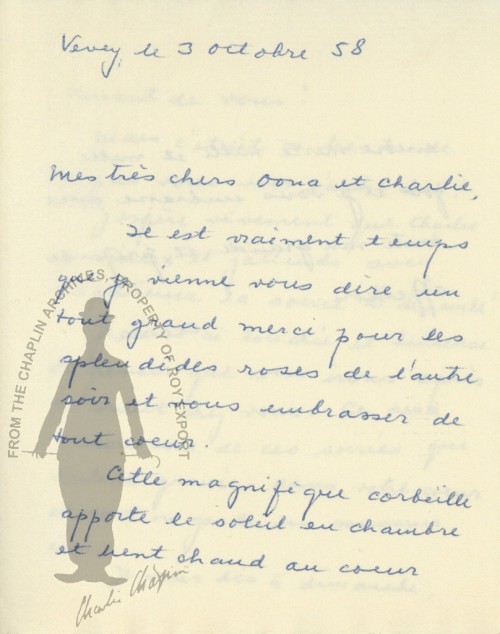 Vevey, le 3 octobre 58
Mes très chers Oona et Charlie,
Il est vraiment temps
que je vienne vous dire un
tout grand merci pour les
splendides roses de l'autre
soir et vous embrasser de
tout coeur.
Cette magnifique corbeille
apporte le soleil en chambre
et tient chaud au coeur
FROM THE CHAPLIN ARCHIVES, PROPERTY OF ROY EXPORT
Charlie Chaplin